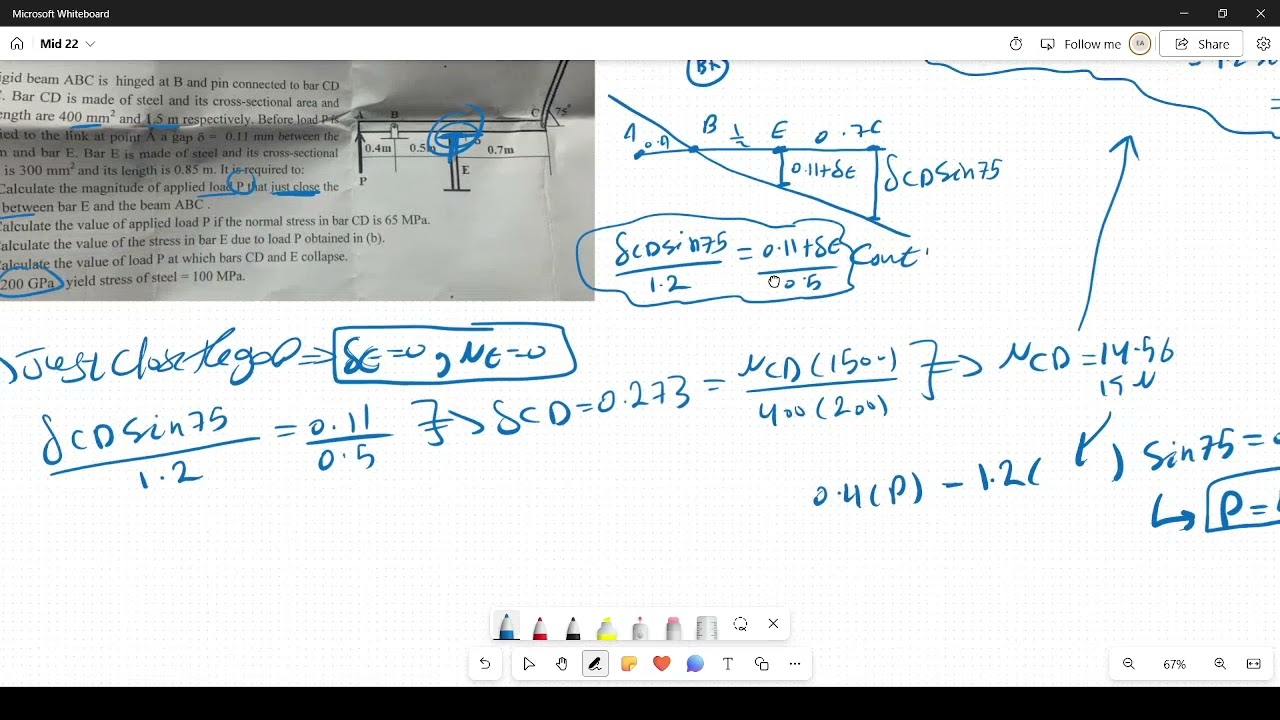 Microsoft Whiteboard
Mid 22
Follow me
EA
Share
igid beam ABC is hinged at B and pin connected to bar CD
. Bar CD is made of steel and its cross-sectional area and
ength are 400 mm² and 1.5 m respectively. Before load P is
ied to the link at point A a gap δ = 0.11 mm between the
m and bar E. Bar E is made of steel and its cross-sectional
is 300 mm² and its length is 0.85 m. It is required to:
Calculate the magnitude of applied load P that just close the
between bar E and the beam ABC .
alculate the value of applied load P if the normal stress in bar CD is 65 MPa.
alculate the value of the stress in bar E due to load P obtained in (b).
alculate the value of load P at which bars CD and E collapse.
200 GPa yield stress of steel = 100 MPa.
A B C 75°
0.4m 0.5m 0.7m
P E
A 0.4 B 1/2 E 0.7 C
0.11+δE
δCD sin75
δCD sin75 / 1.2 = 0.11+δE / 0.5 Cont.
Just close the gap => δE=0 , NE=0
δCD sin75 / 1.2 = 0.11 / 0.5 } => δCD = 0.273 = NCD(1500) / 400(200) } => NCD = 14.56
0.4(P) - 1.2( ) sin75 =
P =
67%